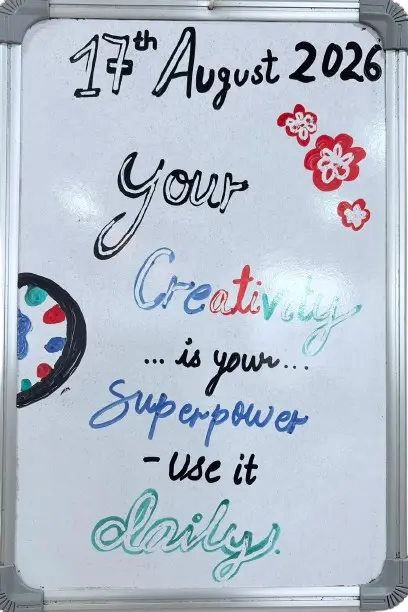 17th August 2026
Your
Creativity
... is your...
Superpower
- use it
daily.